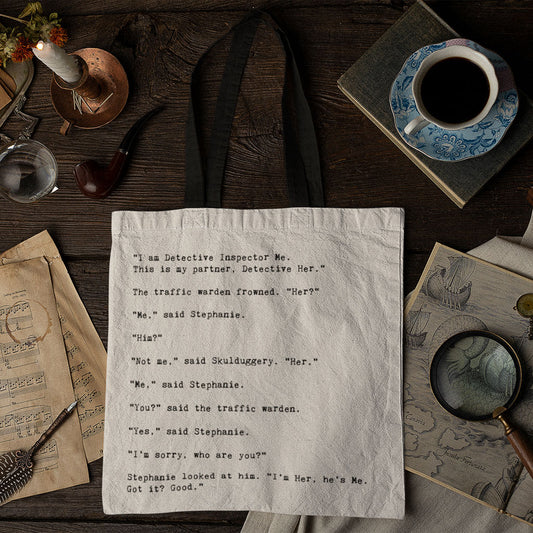 "I am Detective Inspector Me.
This is my partner, Detective Her."
The traffic warden frowned. "Her?"
"Me," said Stephanie.
"Him?"
"Not me," said Skulduggery. "Her."
"Me," said Stephanie.
"You?" said the traffic warden.
"Yes," said Stephanie.
"I'm sorry, who are you?"
Stephanie looked at him. "I'm Her, he's Me.
Got it? Good."